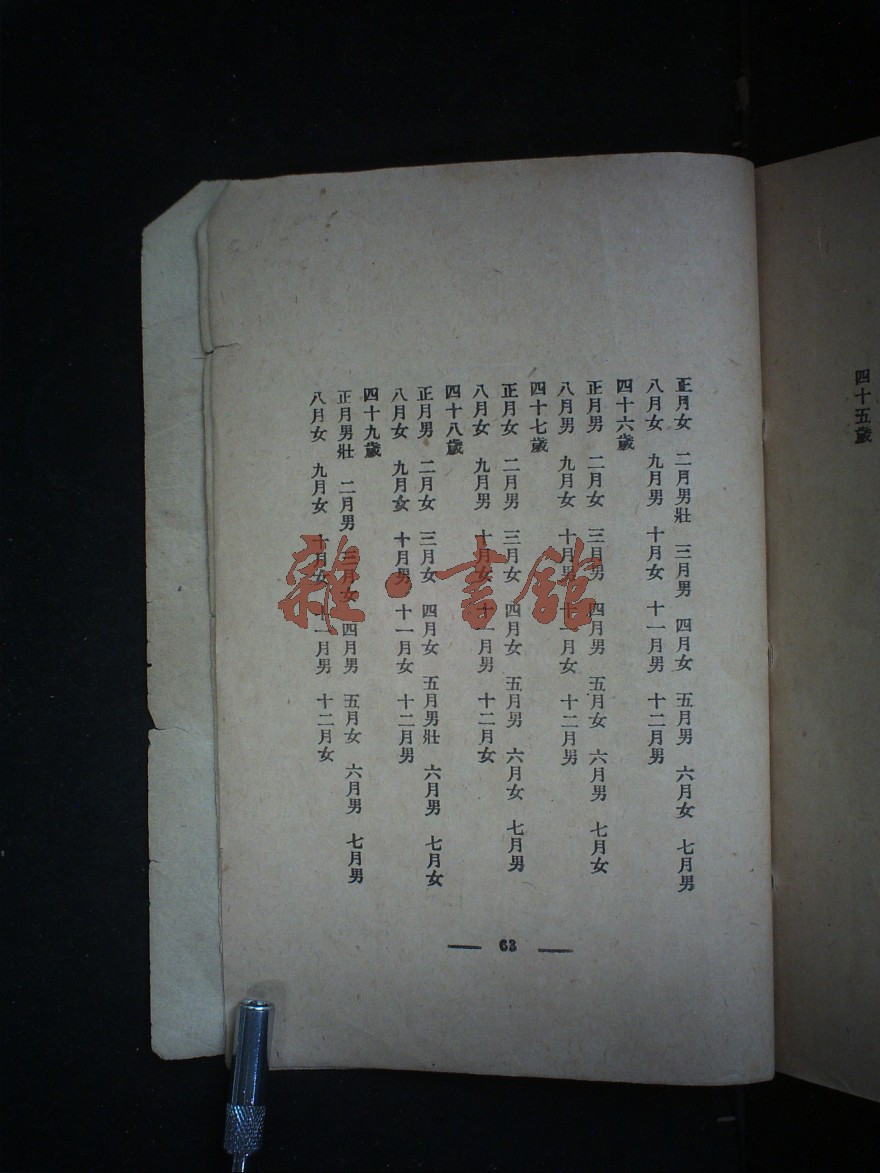 四十五歲
正月女 二月男壯 三月男 四月女 五月男 六月女 七月男
八月女 九月男 十月女 十一月男 十二月男
四十六歲
正月男 二月女 三月男 四月男 五月女 六月男 七月女
八月男 九月女 十月男 十一月女 十二月男
四十七歲
正月女 二月男 三月女 四月女 五月男 六月女 七月男
八月女 九月男 十月女 十一月男 十二月女
四十八歲
正月男 二月女 三月女 四月女 五月男壯 六月男 七月女
八月女 九月女 十月男 十一月女 十二月男
四十九歲
正月男壯 二月男 三月女 四月男 五月女 六月男 七月男
八月女 九月女 十月女 十一月男 十二月女
63
雜·書館